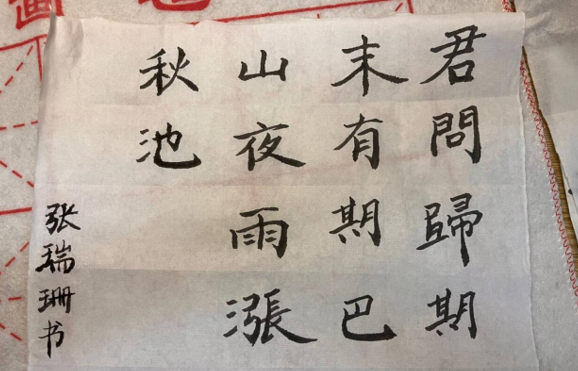 君問歸期
末有期巴
山夜雨漲
秋池
张瑞珊书